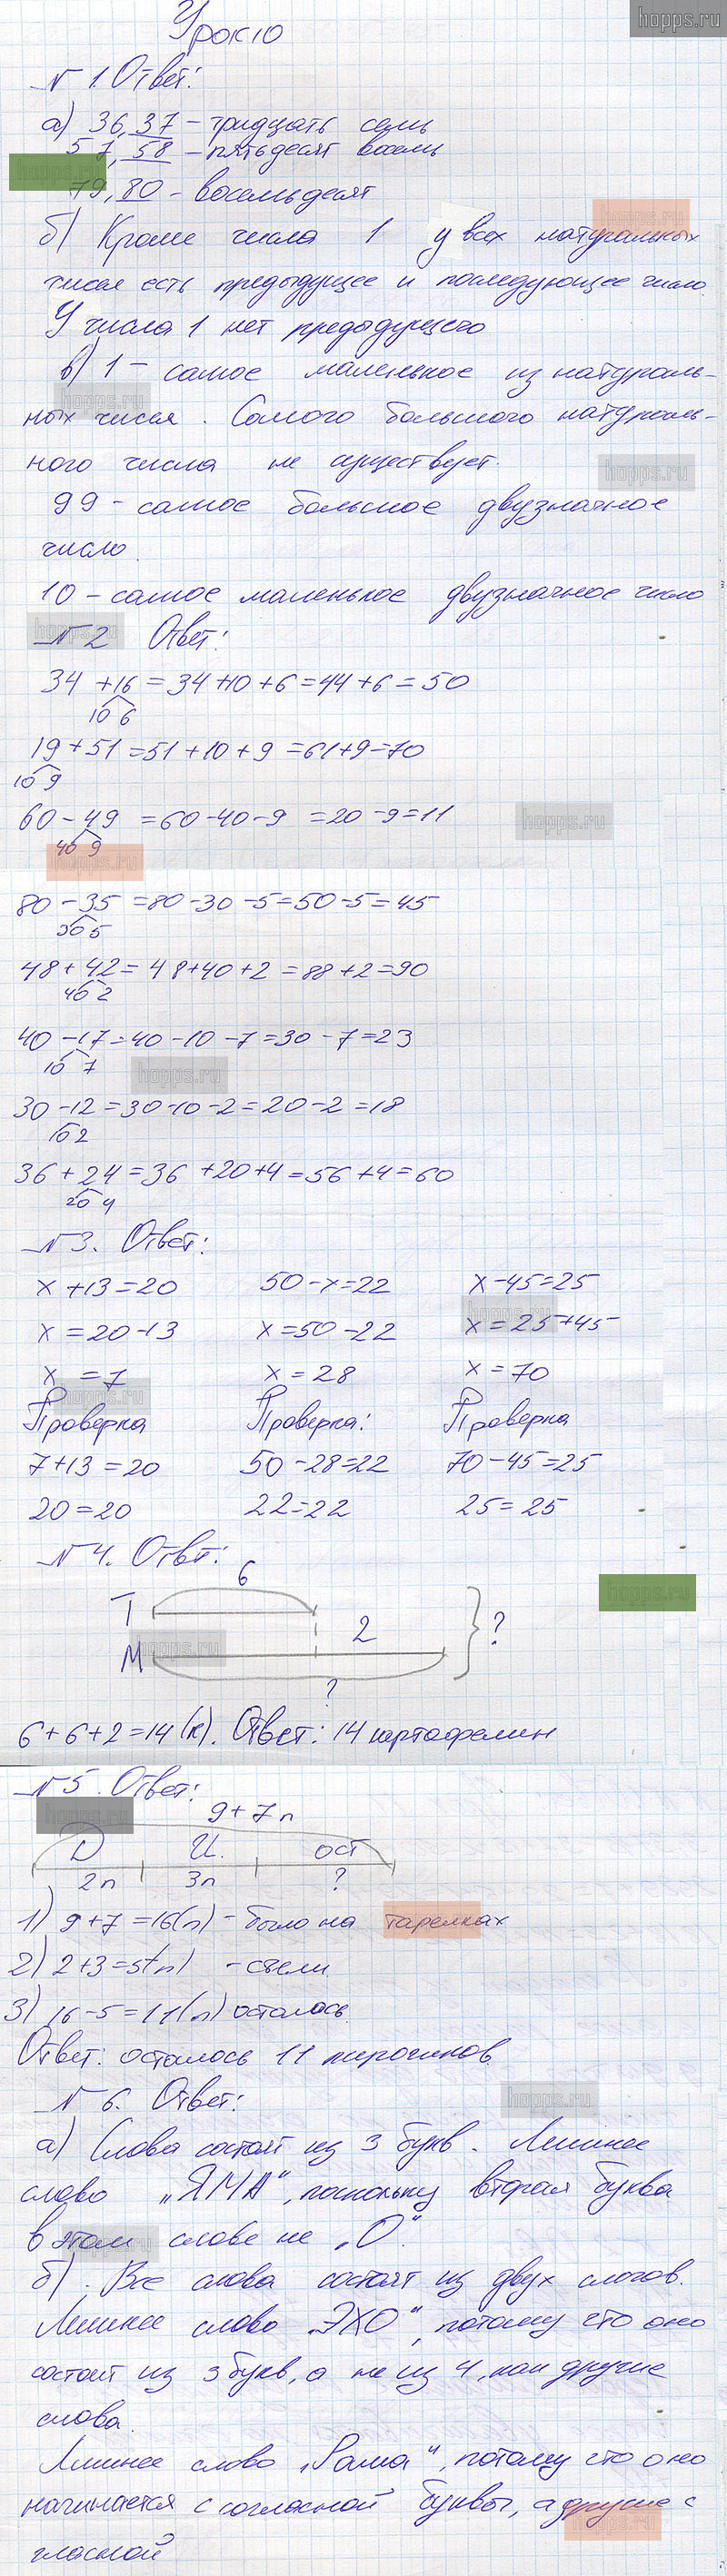 hopps.ru
Урок 10
№ 1. Ответ:
а) 36, 37 – тридцать семь
57, 58 – пятьдесят восемь
79, 80 – восемьдесят
б) Кроме числа 1 у всех натуральных
чисел есть предыдущее и последующее число.
У числа 1 нет предыдущего
в) 1 – самое маленькое из натураль-
ных чисел. Самого большого натураль-
ного числа не существует.
99 – самое большое двузначное
число.
10 – самое маленькое двузначное число
№ 2 Ответ:
34 + 16 = 34 + 10 + 6 = 44 + 6 = 50
10 6
19 + 51 = 51 + 10 + 9 = 61 + 9 = 70
10 9
60 – 49 = 60 – 40 – 9 = 20 – 9 = 11
40 9
80 – 35 = 80 – 30 – 5 = 50 – 5 = 45
30 5
48 + 42 = 48 + 40 + 2 = 88 + 2 = 90
40 2
40 – 17 = 40 – 10 – 7 = 30 – 7 = 23
10 7
30 – 12 = 30 – 10 – 2 = 20 – 2 = 18
10 2
36 + 24 = 36 + 20 + 4 = 56 + 4 = 60
20 4
№ 3. Ответ:
x + 13 = 20 50 – x = 22 x – 45 = 25
x = 20 – 13 x = 50 – 22 x = 25 + 45
x = 7 x = 28 x = 70
Проверка Проверка: Проверка
7 + 13 = 20 50 – 28 = 22 70 – 45 = 25
20 = 20 22 = 22 25 = 25
№ 4. Ответ:
6
Т
2
М
?
?
6 + 6 + 2 = 14 (к). Ответ: 14 картофелин
№ 5. Ответ:
9 + 7 п
D И. ост
2п 3п ?
1) 9 + 7 = 16 (п) – было на тарелках
2) 2 + 3 = 5 (п) – съели
3) 16 – 5 = 11 (п) осталось.
Ответ: осталось 11 пирожков.
№ 6. Ответ:
а) Слова состоят из 3 букв. Лишнее
слово „ЯМА", поскольку вторая буква
в этом слове не „О".
б). Все слова состоят из двух слогов.
Лишнее слово „ЭХО", потому что оно
состоит из 3 букв, а не из 4, как другие
слова.
Лишнее слово „Рама", потому что оно
начинается с согласной буквы, а другие с
гласной